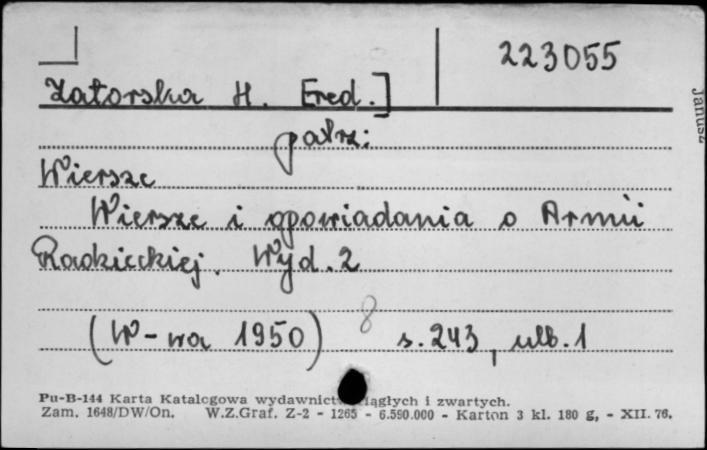 223055
Zatorska H. [red.]
patrz:
Wiersze
Wiersze i opowiadania o Armii
Radzieckiej. Wyd. 2
(W-wa 1950) 8 s. 243, ulb. 1
Pu-B-144 Karta Katalogowa wydawnictw ciągłych i zwartych.
Zam. 1648/DW/On. W.Z.Graf. Z-2 - 1265 - 6.590.000 - Karton 3 kl. 180 g, - XII. 76.
Janusz